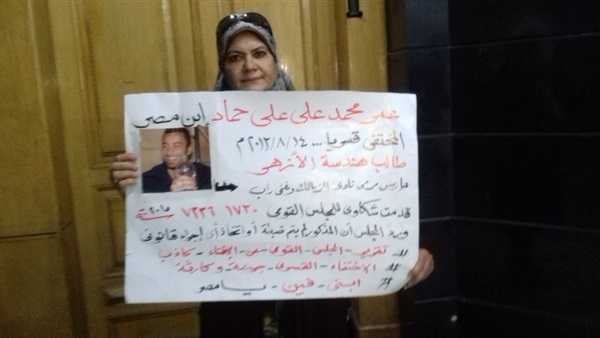 عمر محمد على على حماد ابن مصر
المختفى قسريا ... ١٤ / ٨ / ٢٠١٣ م
طالب هندسة الأزهر
حارس مرمى نادى الزمالك ومغنى راب
قدمت شكاوى للمجلس القومى ١٧٣٠ ٧٢٣٦ سنة ٢٠١٥
ورد المجلس أن المذكور لم يتم ضبطه أو اتخاذ أى إجراء قانونى
# تقرير - المجلس - القومى - عن - الإختفاء - كاذب
# الاختفاء - القسرى - جريمة - وكارثة
# ابنى - فين - يا مصر